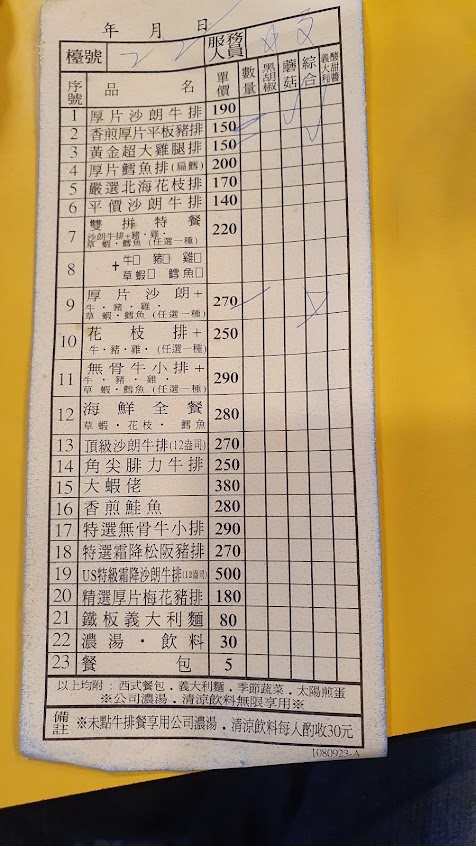 年 月 日
檯號 服務人員
序號 品名 單價 數量 黑胡椒 蘑菇 綜合 義大利 酸甜醬
1 厚片沙朗牛排 190
2 香煎厚片平板豬排 150
3 黃金超大雞腿排 150
4 厚片鱈魚排(扁鱈) 200
5 嚴選北海花枝排 170
6 平價沙朗牛排 140
7 雙拼特餐 220
沙朗牛排+豬·雞·
草蝦·鱈魚(任選一種)
8 +牛□ 豬□ 雞□
草蝦□ 鱈魚□
9 厚片沙朗+ 270
牛·豬·雞·
草蝦·鱈魚(任選一種)
10 花枝排+ 250
牛·豬·雞·(任選一種)
11 無骨牛小排+ 290
牛·豬·雞·
草蝦·鱈魚(任選一種)
12 海鮮全餐 280
草蝦·花枝·鱈魚
13 頂級沙朗牛排(12盎司) 270
14 角尖腓力牛排 250
15 大蝦佬 380
16 香煎鮭魚 280
17 特選無骨牛小排 290
18 特選霜降松阪豬排 270
19 US特級霜降沙朗牛排(12盎司) 500
20 精選厚片梅花豬排 180
21 鐵板義大利麵 80
22 濃湯·飲料 30
23 餐包 5
以上均附:西式餐包·義大利麵·季節蔬菜·太陽煎蛋
※公司濃湯·清涼飲料無限享用※
備註 ※未點牛排餐享用公司濃湯·清涼飲料每人酌收30元
1080923-A